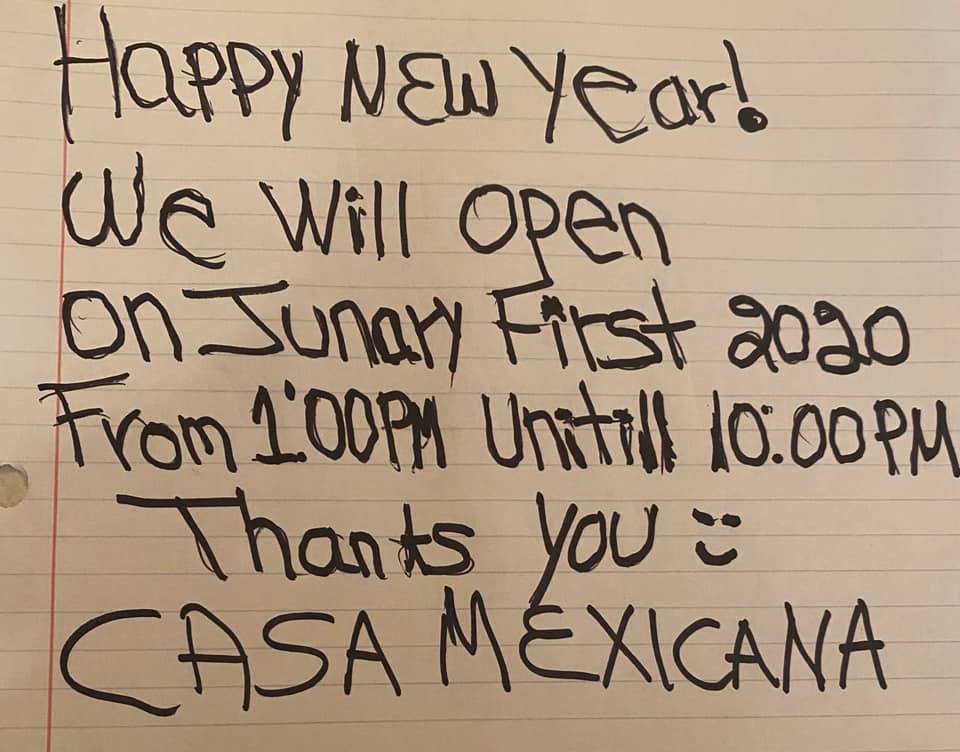 Happy New Year!
We Will Open
On Junary First 2020
From 1:00PM Unitill 10:00PM
Thants you :)
CASA MEXICANA